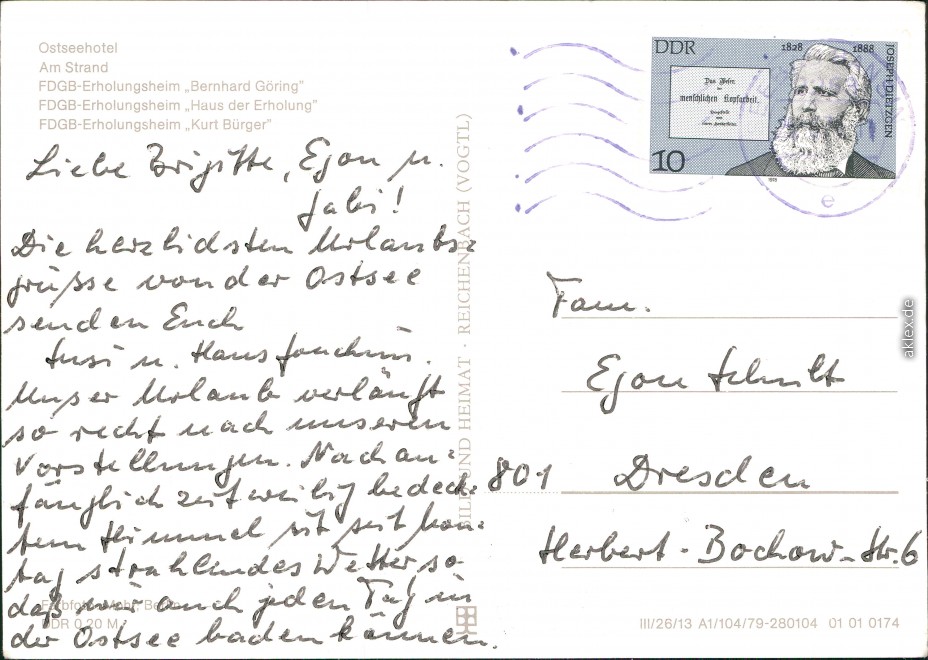 Ostseehotel
Am Strand
FDGB-Erholungsheim „Bernhard Göring”
FDGB-Erholungsheim „Haus der Erholung”
FDGB-Erholungsheim „Kurt Bürger”
Liebe Brigitte, Egon u.
Gabi!
Die herzlichsten Urlaubs=
grüsse von der Ostsee
senden Euch
Susi u. Hans Joachim.
Unser Urlaub verläuft
so recht nach unseren
Vorstellungen. Nach an=
fänglich zeitweilig bedeck=
tem Himmel ist seit Mon=
tag strahlendes Wetter so
daß wir auch jeden Tag in
der Ostsee baden können.
Farbfoto: Mohr, Berlin
DDR 0,20 M
BILD UND HEIMAT · REICHENBACH (VOGTL)
DDR 1828 1888
JOSEPH DIETZGEN
Das Wesen
der
menschlichen Kopfarbeit.
10
1978
e
Fam.
Egon Schult
801 Dresden
Herbert-Bochow-Str. 6
III/26/13 A1/104/79-280104 01 01 0174
aklex.de